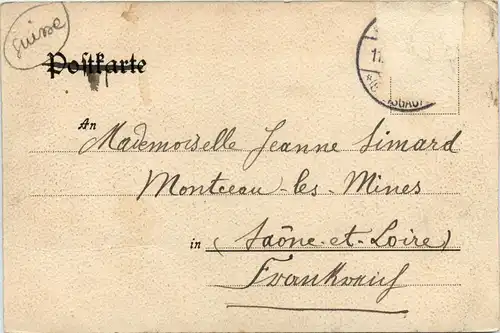 Suisse
Postkarte
An Mademoiselle Jeanne Simard
Montceau-les-Mines
in (Saône-et-Loire)
Frankreich